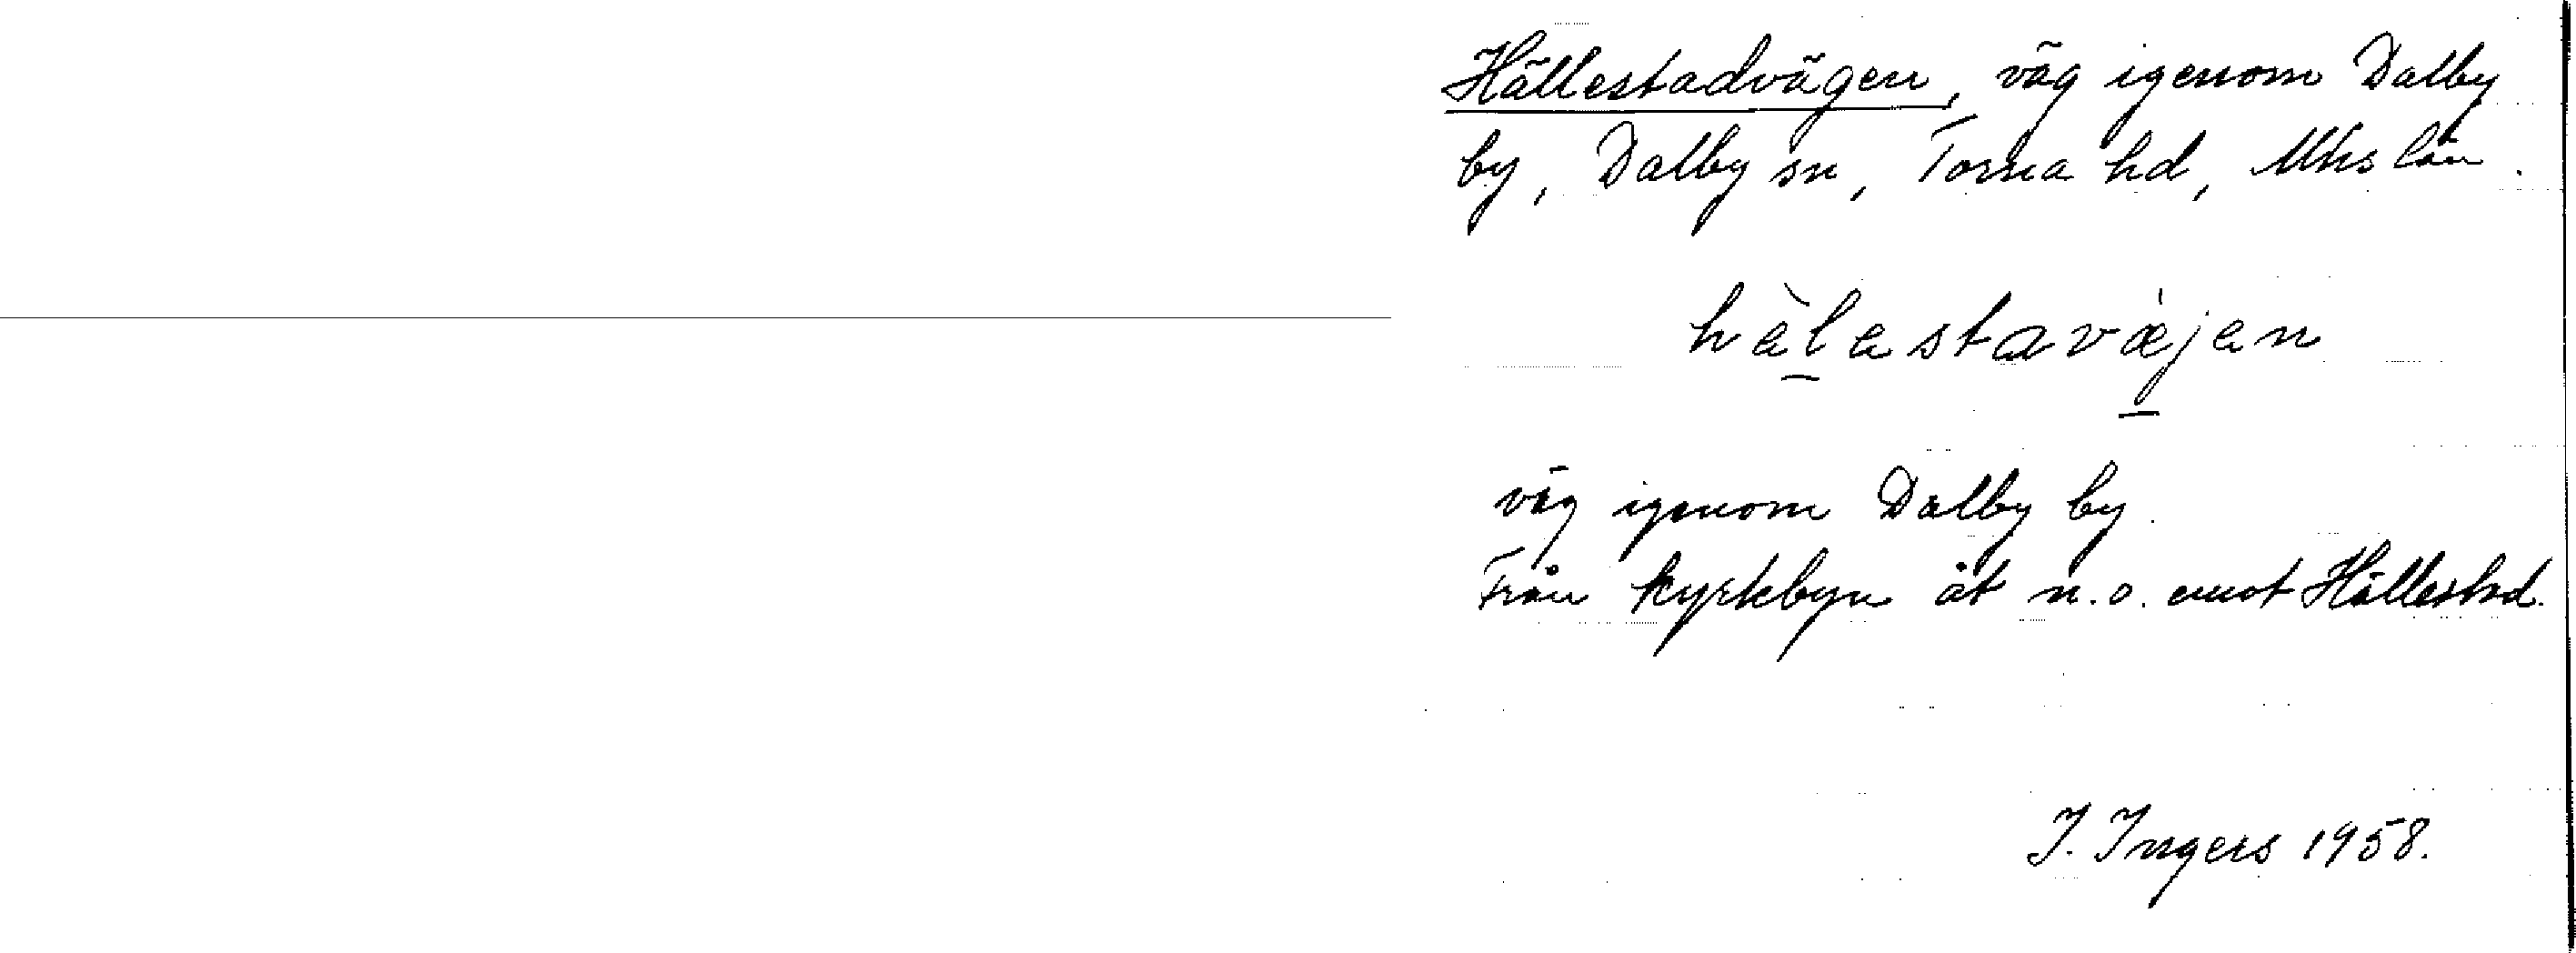 Hällestadvägen, väg igenom Dalby
by, Dalby sn, Torna hd, Mhs län.
hàlastavàjan
väg igenom Dalby by.
Från kyrkbyn åt n.o. emot Hällestad.
I. Ingers 1958.